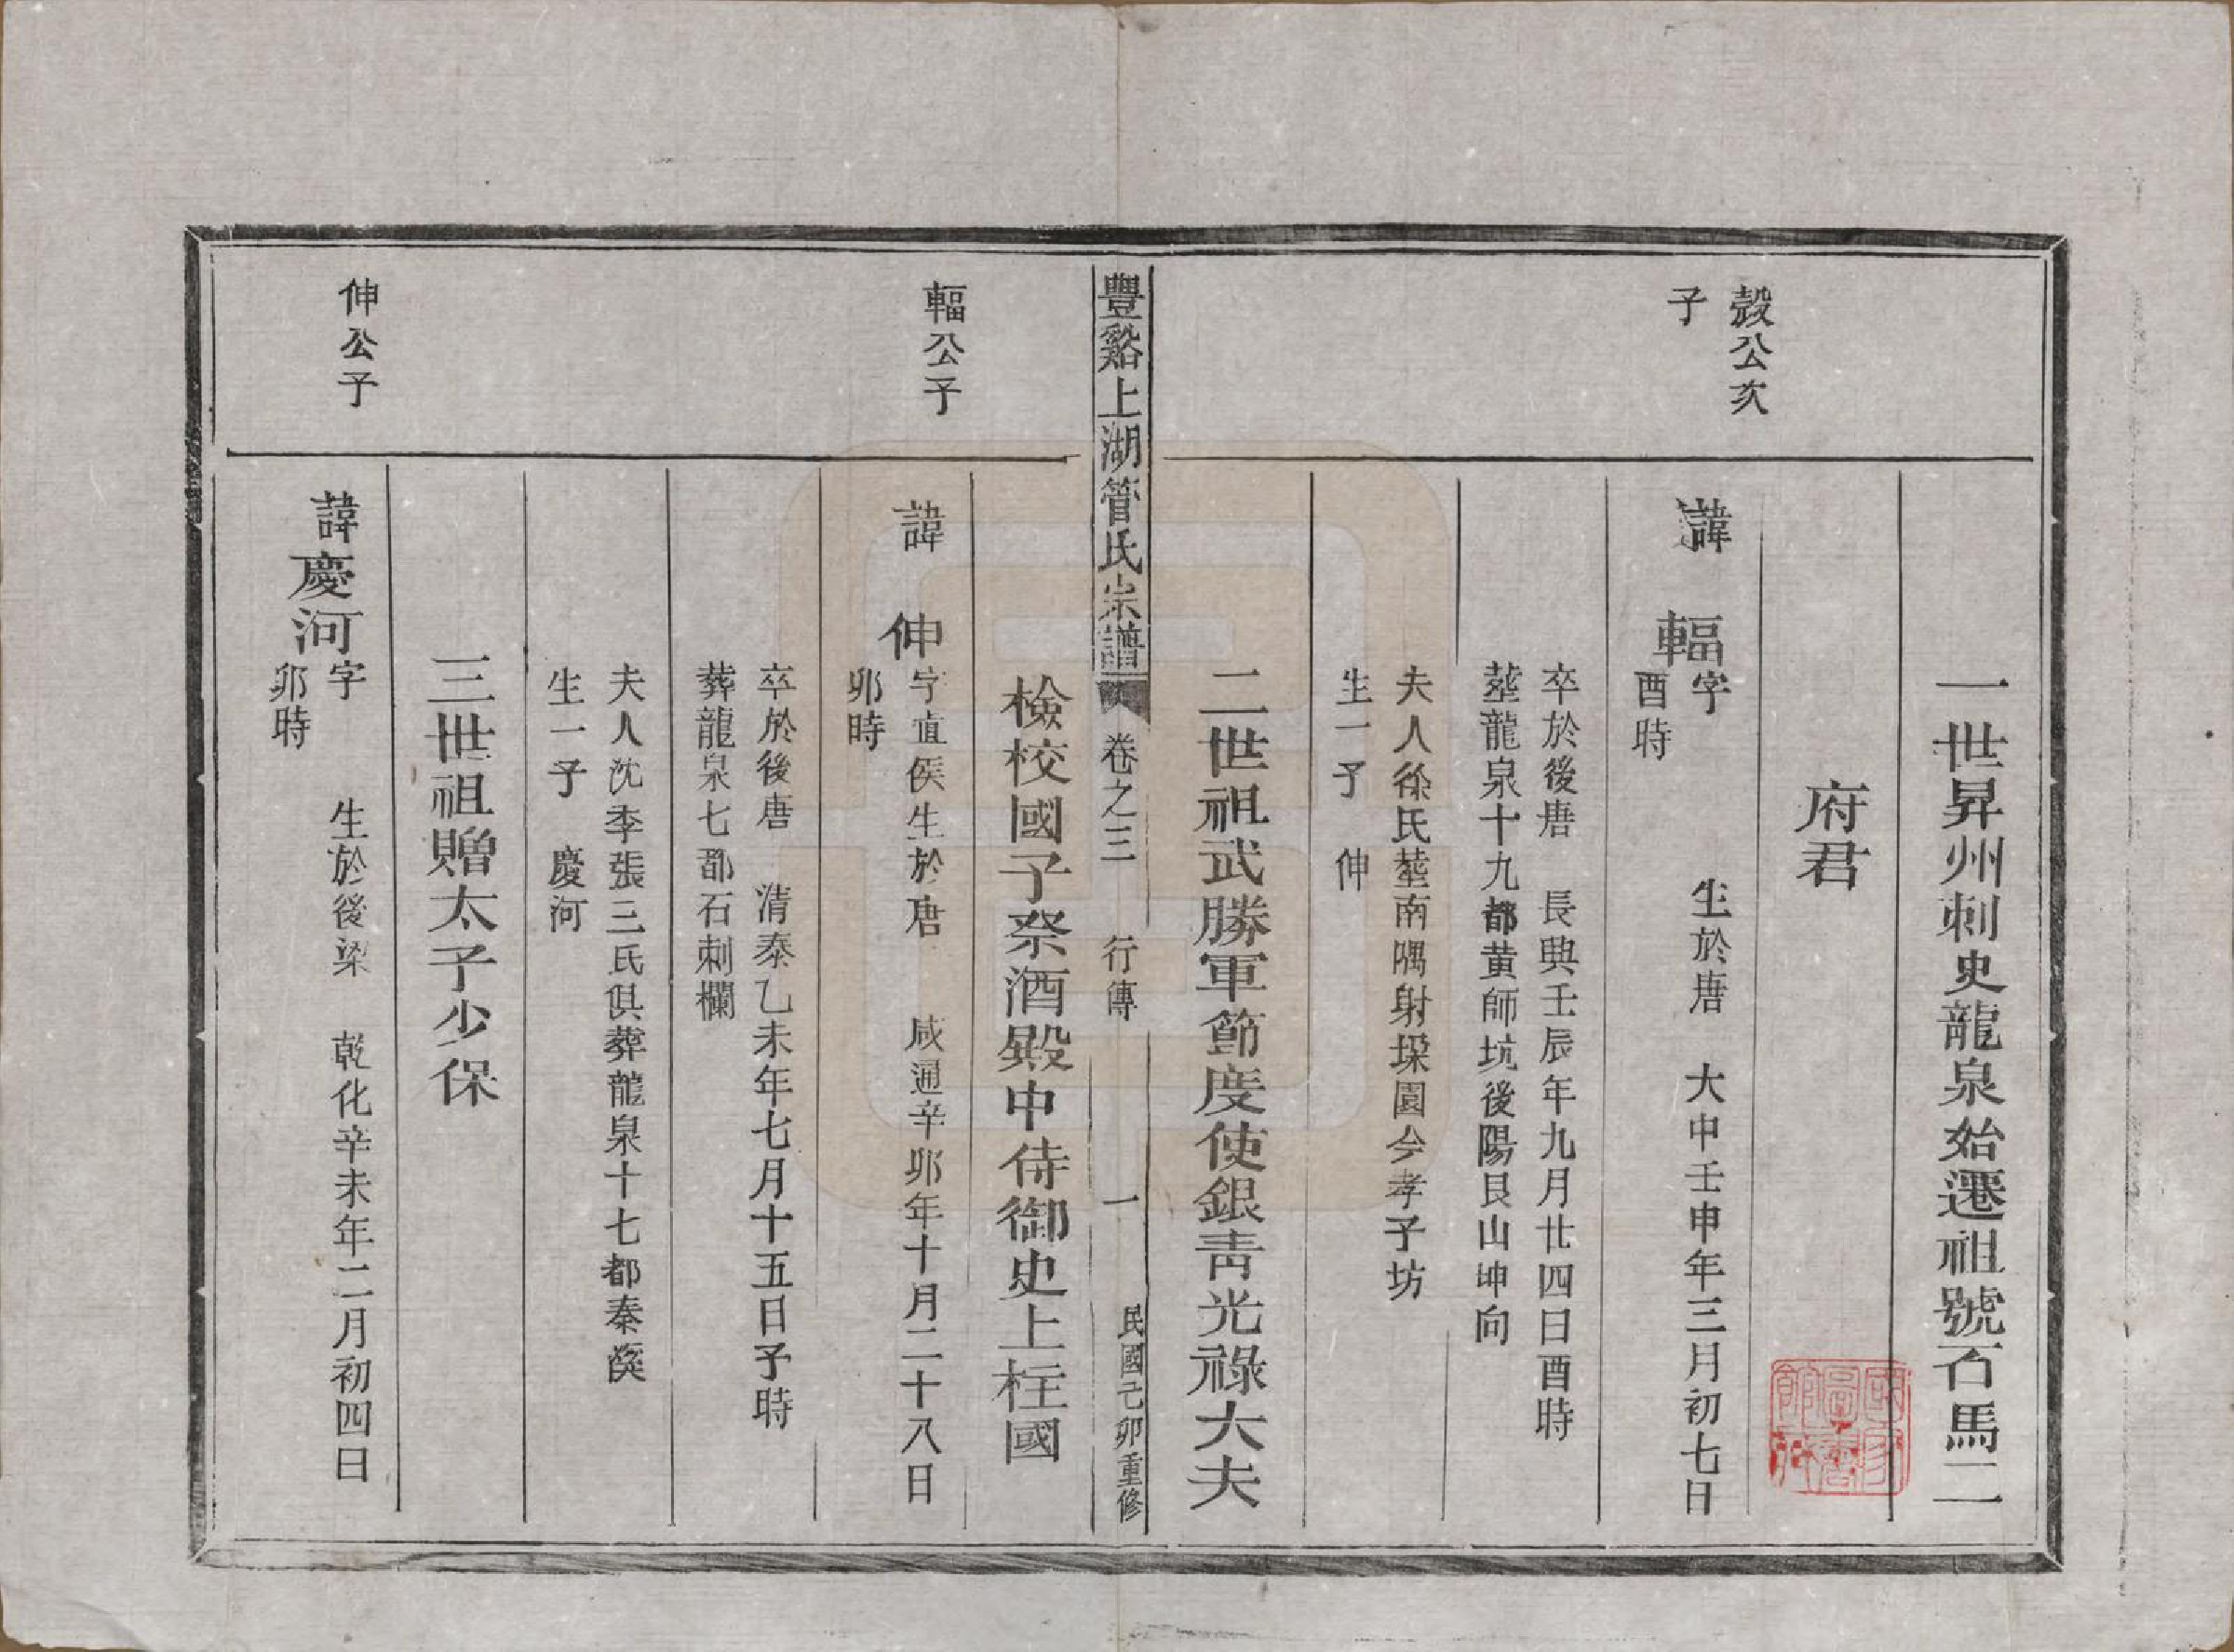 一世昇州刺史龍泉始遷祖號石馬二
府君
穀公次
子
諱　輻字　　生於唐　大中壬申年三月初七日
酉時
卒於後唐　長興壬辰年九月廿四日酉時
塟龍泉十九都黄師坑後陽艮山坤向
夫人徐氏塟南隅射垛園今孝子坊
生一子　伸
二世祖武勝軍節度使銀青光祿大夫
豐谿上湖管氏宗譜　卷之三　行傳　一　民國己卯重修
檢校國子祭酒殿中侍御史上柱國
輻公子
諱　伸字值侯生於唐　咸通辛卯年十月二十八日
卯時
卒於後唐　清泰乙未年七月十五日子時
葬龍泉七都石刺欄
夫人沈李張三氏俱葬龍泉十七都秦溪
生一子　慶河
三世祖贈太子少保
伸公子
諱慶河字　　生於後梁　乾化辛未年二月初四日
卯時